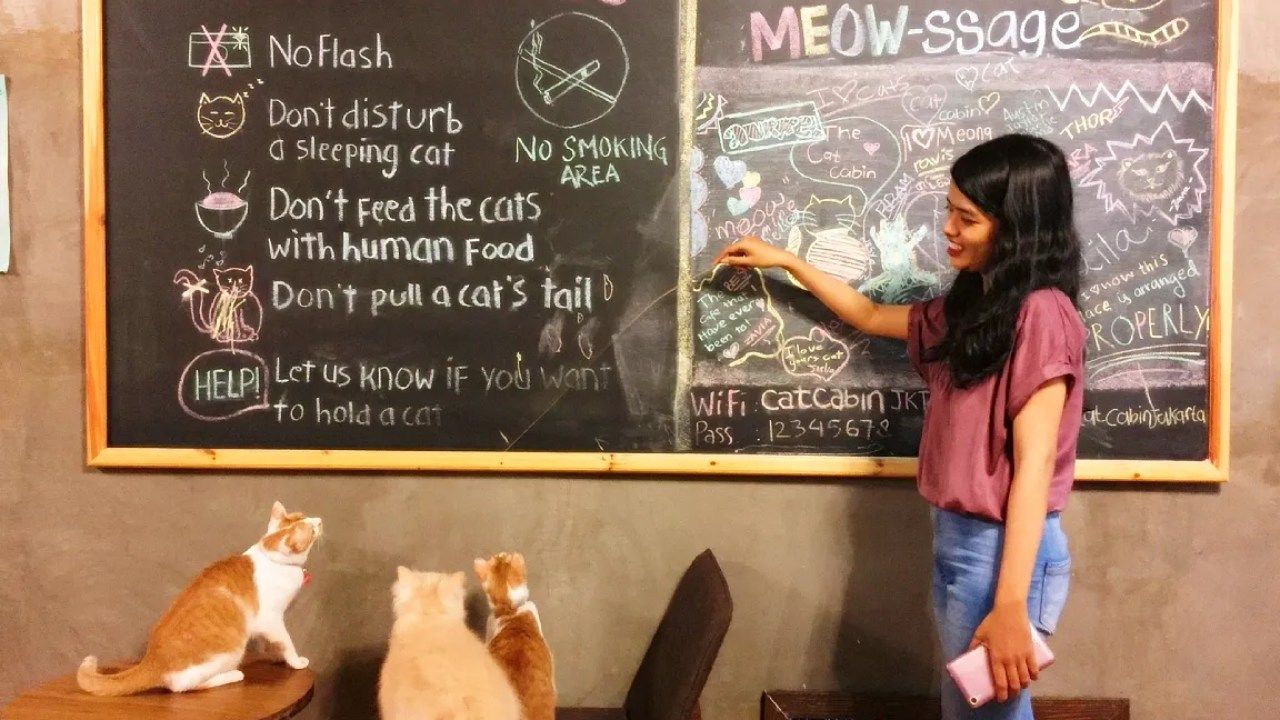 No Flash
Don't disturb
a sleeping cat
Don't feed the cats
with human food
Don't pull a cat's tail
HELP!
Let us know if you want
to hold a cat
NO SMOKING
AREA
MEOW-ssage
I ♡ Cats
♡ Cat
cat
cabin ♡
Austin
The
Cat
Cabin
I ♡ Meong
THOR
meow
The
cafe that
Have ever
been to!
I love
yours cat
I ♡ how this
place is arranged
PROPERLY
WiFi : CatCabin JKT
Pass : 12345678
CatCabinJakarta